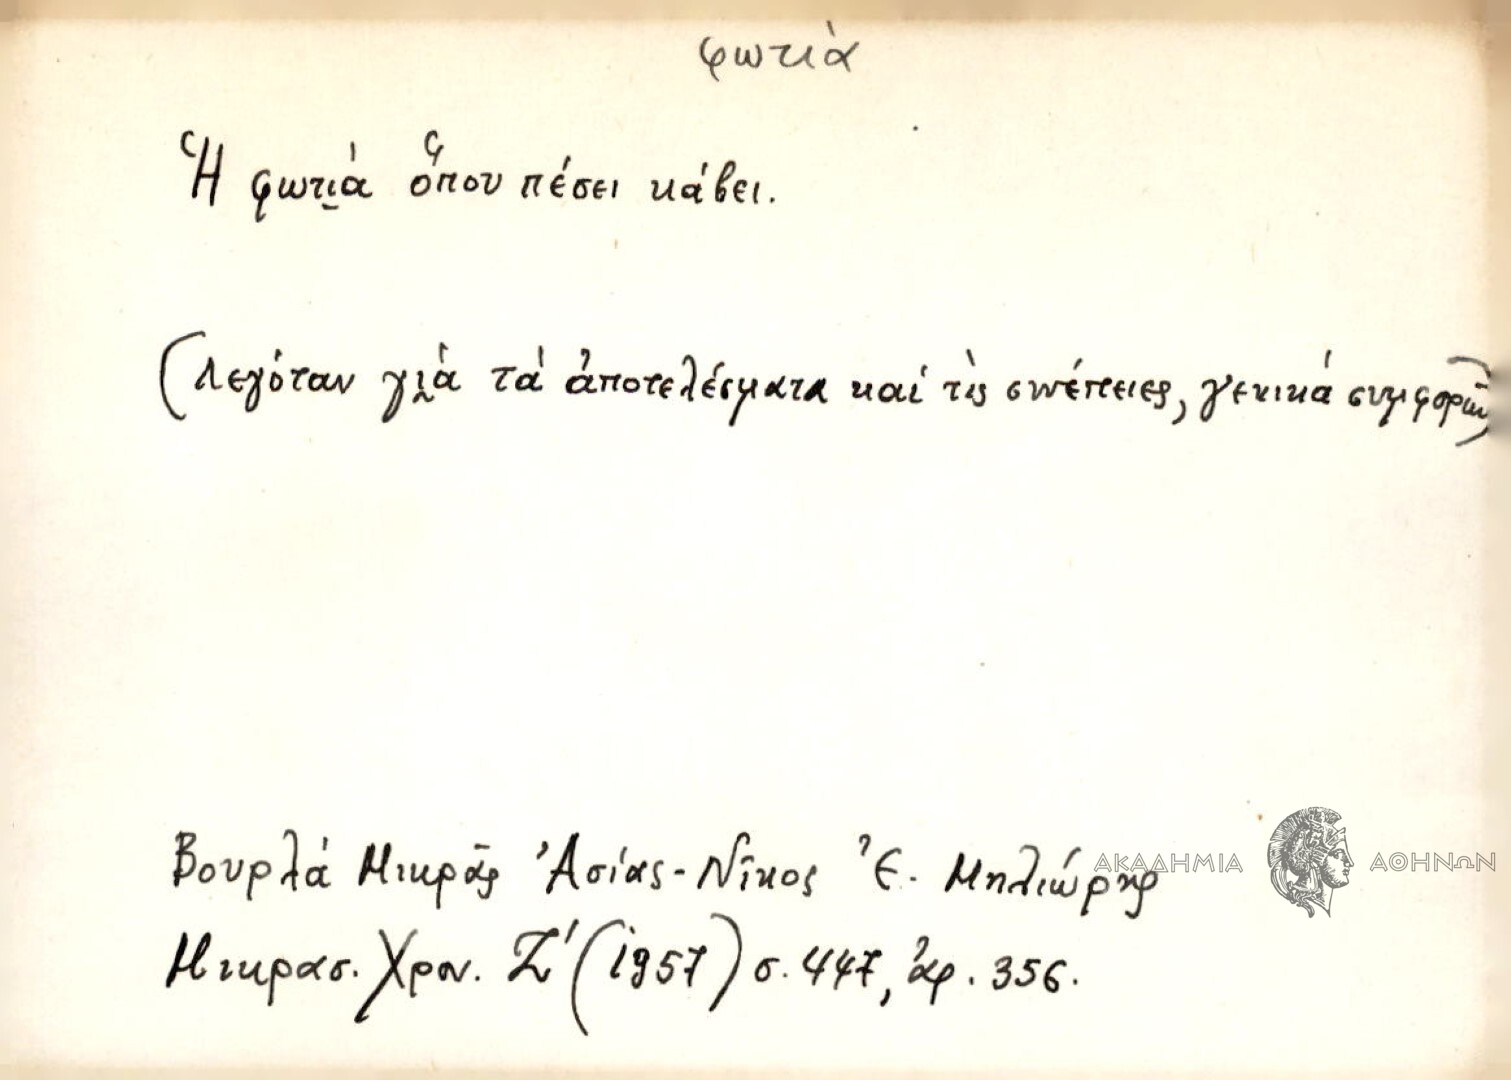 φωτιὰ
Ἡ φωτιά ὅπου πέσει κάβει.
(Λεγόταν γιὰ τά ἀποτελέσματα καί τὶς συνέπειες, γενικά συμφορῶν)
Βουρλά Μικρᾶς Ἀσίας - Νῖκος Ἐ. Μηλιώρης
ΑΚΑΔΗΜΙΑ ΑΘΗΝΩΝ
Μικρασ. Χρον. Ζ' (1957) σ. 447, ἀρ. 356.